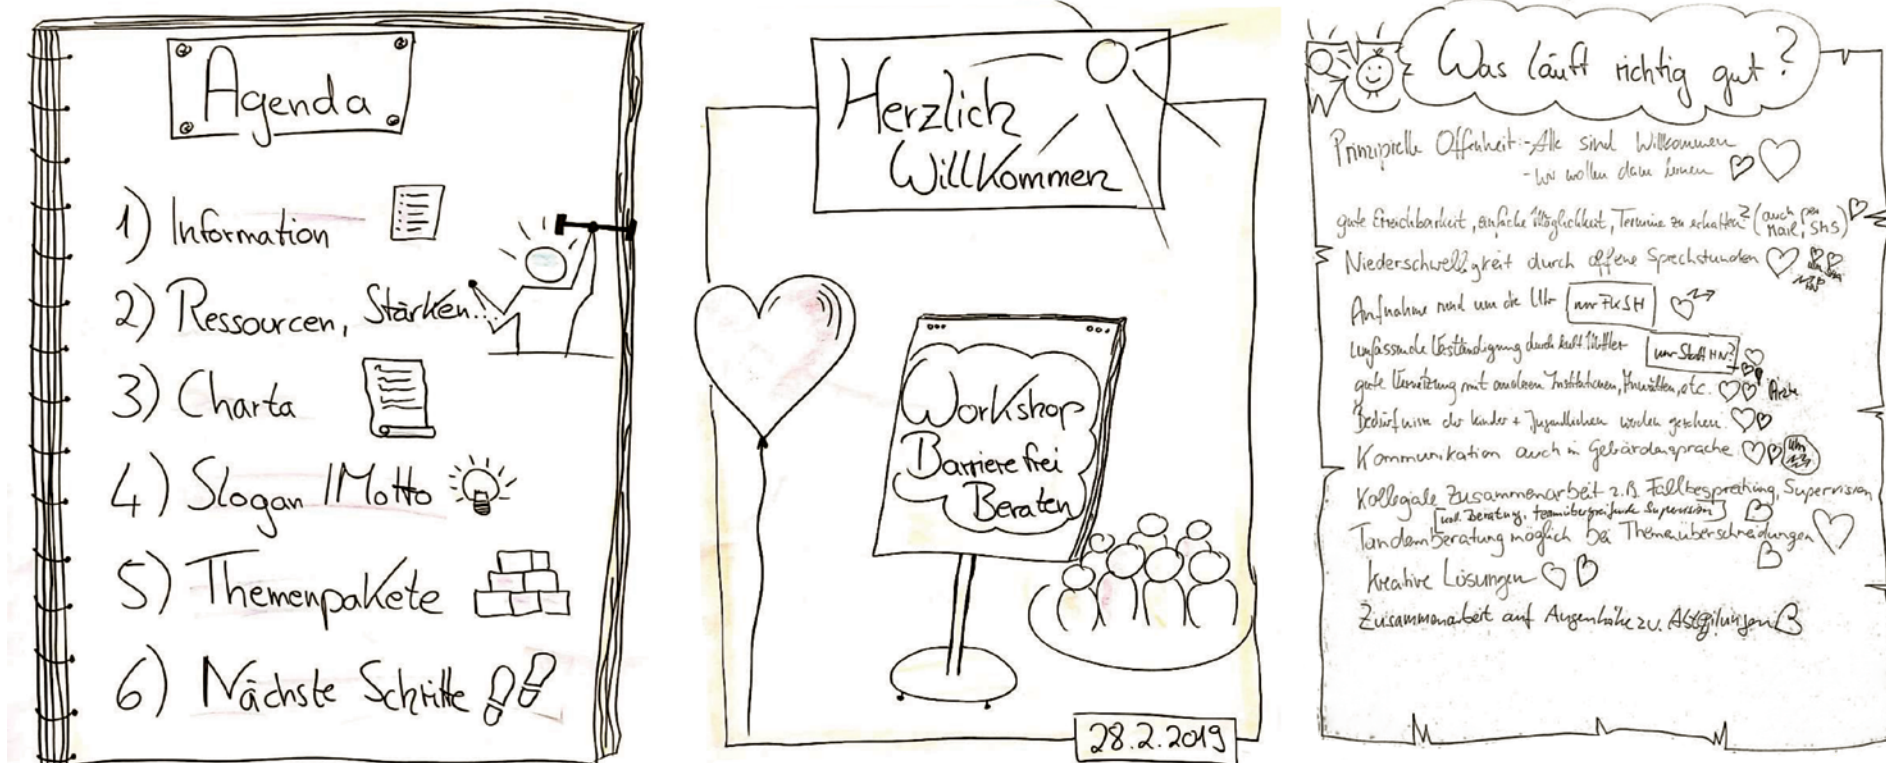 Agenda
1) Information
2) Ressourcen, Stärken...
3) Charta
4) Slogan / Motto
5) Themenpakete
6) Nächste Schritte
Herzlich
Willkommen
Workshop
Barrierefrei
Beraten
28.2.2019
Was läuft richtig gut?
Prinzipielle Offenheit: - Alle sind Willkommen
- Wir wollen dazu lernen
gute Erreichbarkeit, einfache Möglichkeit, Termine zu erhalten? (auch per Mail, SMS)
Niederschwelligkeit durch offene Sprechstunden
Aufnahme rund um die Uhr nur FKSH
umfassende Verständigung durch
gute Vernetzung mit anderen Institutionen, Anwälten, etc. Ärzte
Bedürfnisse der Kinder + Jugendlichen werden gesehen.
Kommunikation auch in Gebärdensprache
Kollegiale Zusammenarbeit z.B. Fallbesprechung, Supervision
Beratung, teamübergreifende Supervision
Tandemberatung möglich bei Themenüberschneidungen
kreative Lösungen
Zusammenarbeit auf Augenhöhe zw. Abteilungen